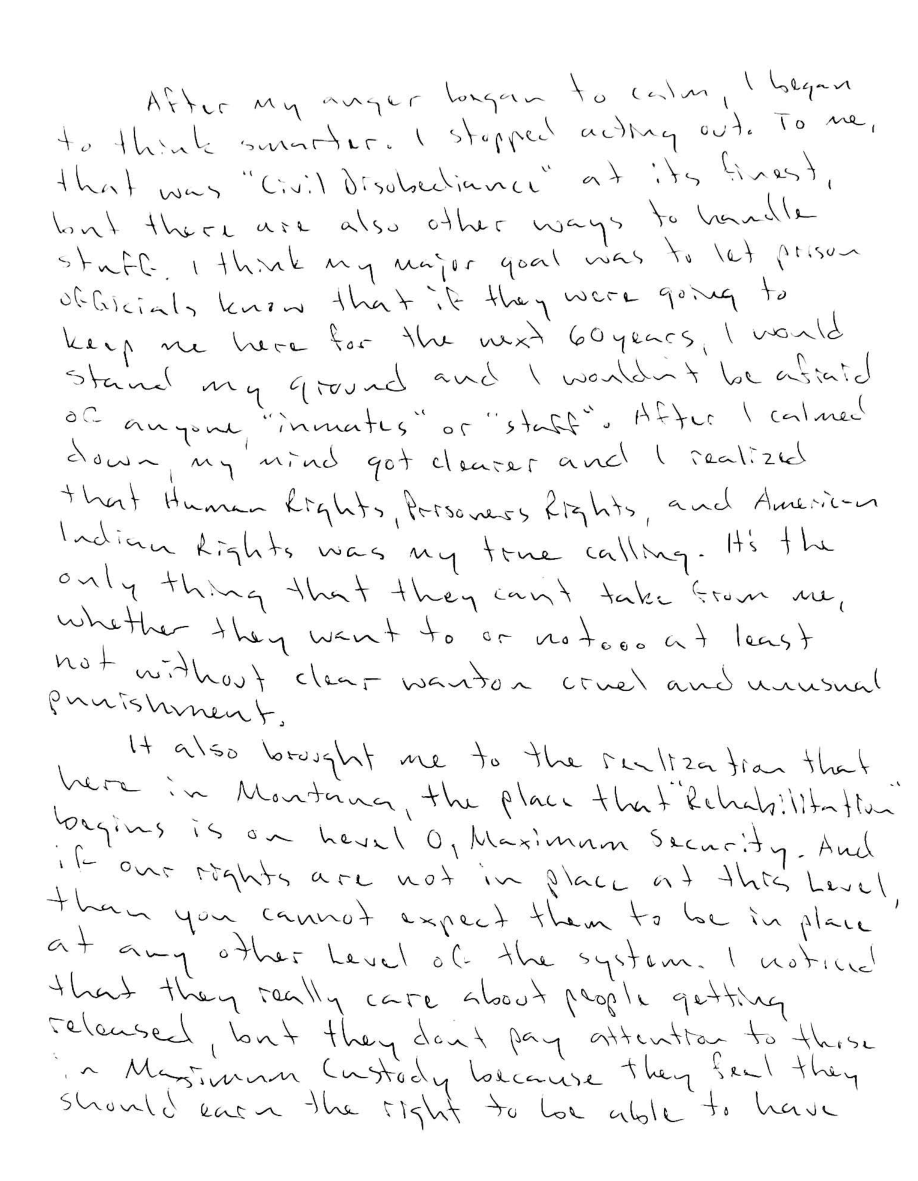 After my anger bangan to calm, I began
to think smarter. I stopped acting out. To me,
that was "Civil Disobediance" at its finest,
but there are also other ways to handle
stuff. I think my major goal was to let prison
officials know that if they were going to
keep me here for the next 60 years, I would
stand my ground and I wouldn't be afraid
of anyone, "inmates" or "staff". After I calmed
down, my mind got clearer and I realized
that Human Rights, Prisoners Rights, and American
Indian Rights was my true calling. It's the
only thing that they can't take from me,
whether they want to or not... at least
not without clear wanton cruel and unusual
punishment.
It also brought me to the realization that
here in Montana, the place that "Rehabilitation"
begins is on Level 0, Maximum Security. And
if our rights are not in place at this Level,
than you cannot expect them to be in place
at any other Level of the system. I noticed
that they really care about people getting
released, but they don't pay attention to those
in Maximum Custody because they feel they
should earn the right to be able to have